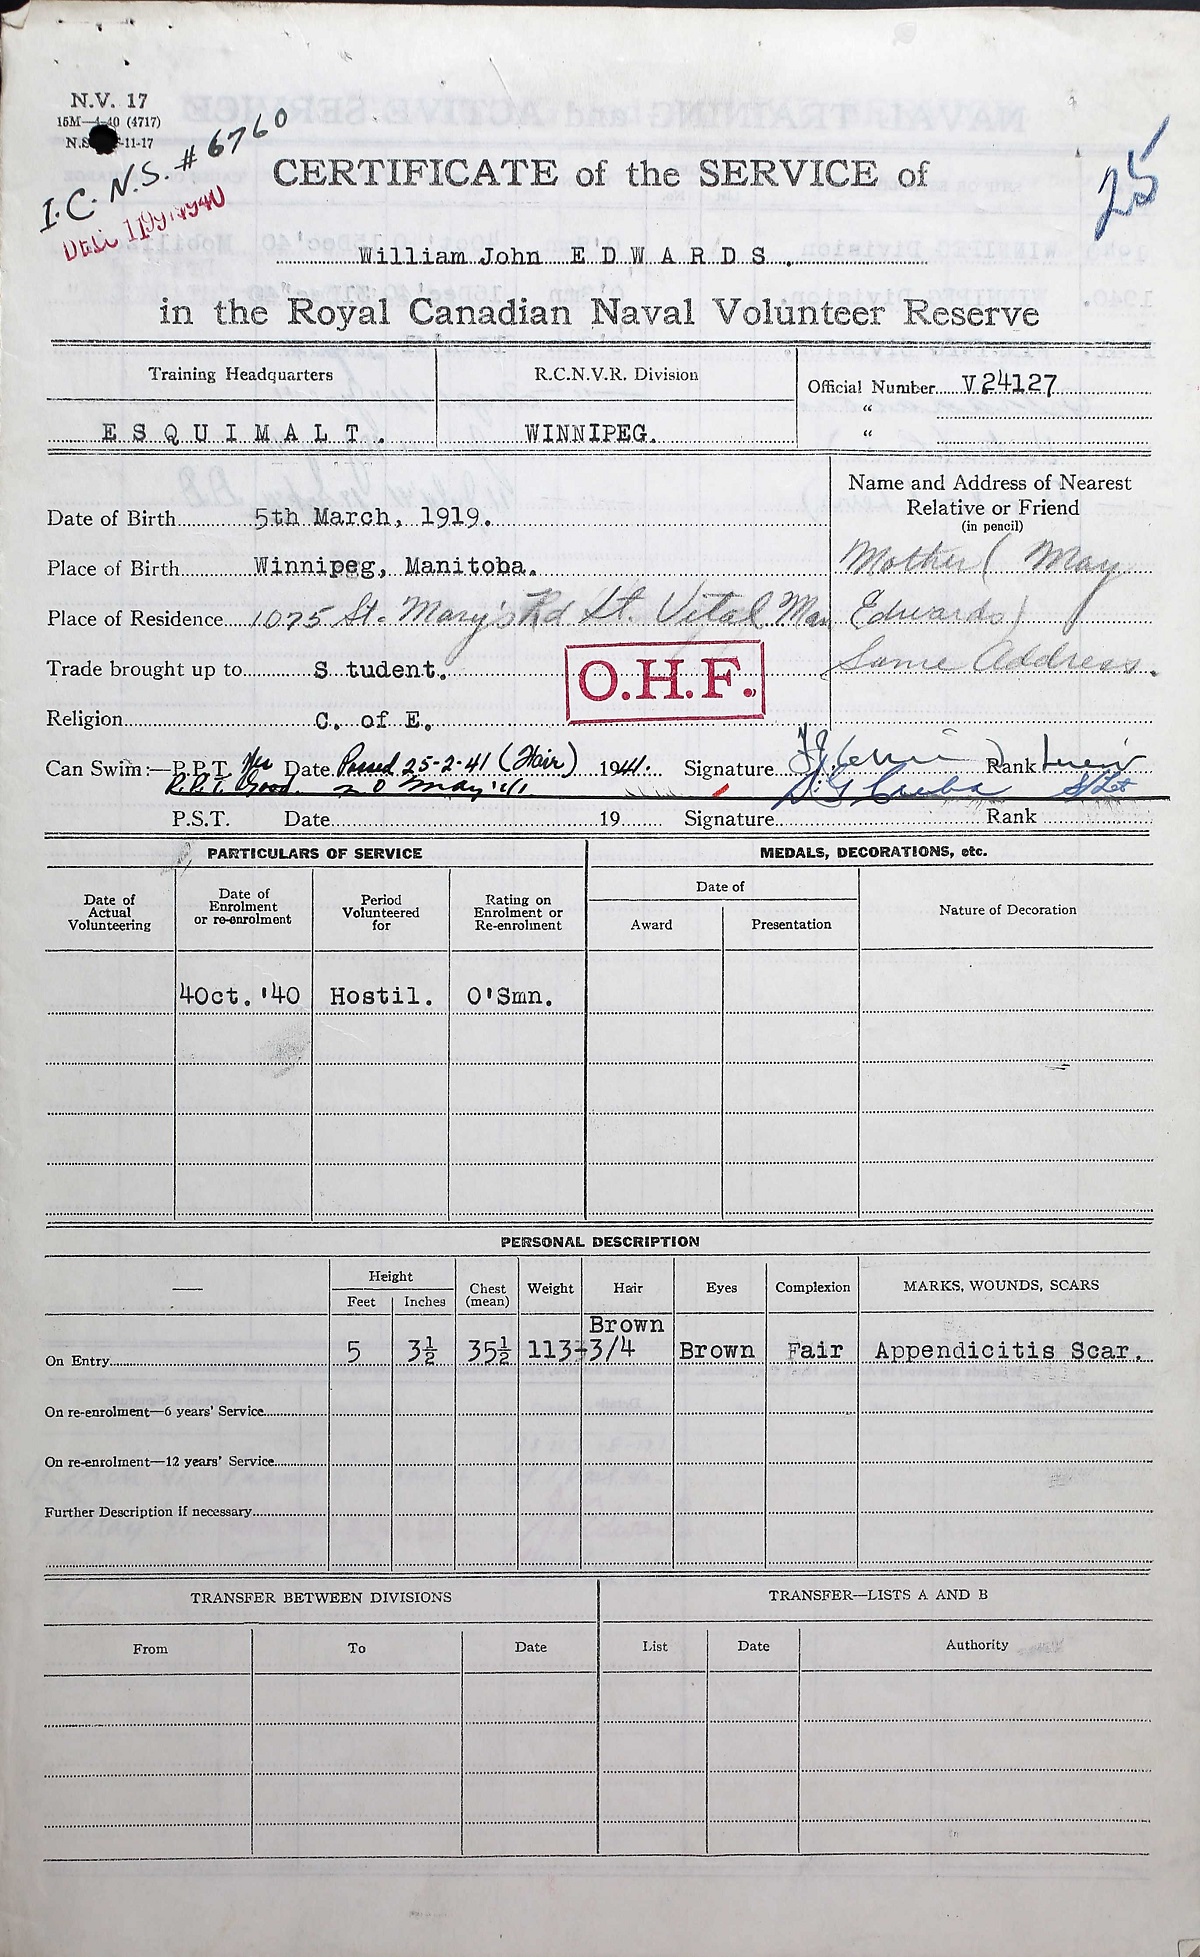 N.V. 17
15M—4-40 (4717)
N.S. -11-17
I.C.N.S. # 6760
25
CERTIFICATE of the SERVICE of
William John EDWARDS.
in the Royal Canadian Naval Volunteer Reserve
Training Headquarters
ESQUIMALT.
R.C.N.V.R. Division
WINNIPEG.
Official Number V24127
"
"
Date of Birth 5th March, 1919.
Place of Birth Winnipeg, Manitoba.
Place of Residence 1075 St. Mary's Rd St. Vital Man
Trade brought up to S tudent.
Religion C. of E.
Name and Address of Nearest
Relative or Friend
(in pencil)
Mother ( May
Edwards)
Same Address.
O.H.F.
Can Swim:—P.P.T. Yes Date Passed 25-2-41 (Fair) 1941. Signature Rank
Good
P.S.T. Date 19 Signature Rank
PARTICULARS OF SERVICE
Date of Actual Volunteering
Date of Enrolment or re-enrolment
Period Volunteered for
Rating on Enrolment or Re-enrolment
4Oct.'40 Hostil. O'Smn.
MEDALS, DECORATIONS, etc.
Date of
Award
Presentation
Nature of Decoration
PERSONAL DESCRIPTION
—
Height
Feet
Inches
Chest (mean)
Weight
Hair
Eyes
Complexion
MARKS, WOUNDS, SCARS
Brown
On Entry 5 3½ 35½ 113-3/4 Brown Fair Appendicitis Scar.
On re-enrolment—6 years' Service
On re-enrolment—12 years' Service
Further Description if necessary
TRANSFER BETWEEN DIVISIONS
From
To
Date
TRANSFER—LISTS A AND B
List
Date
Authority